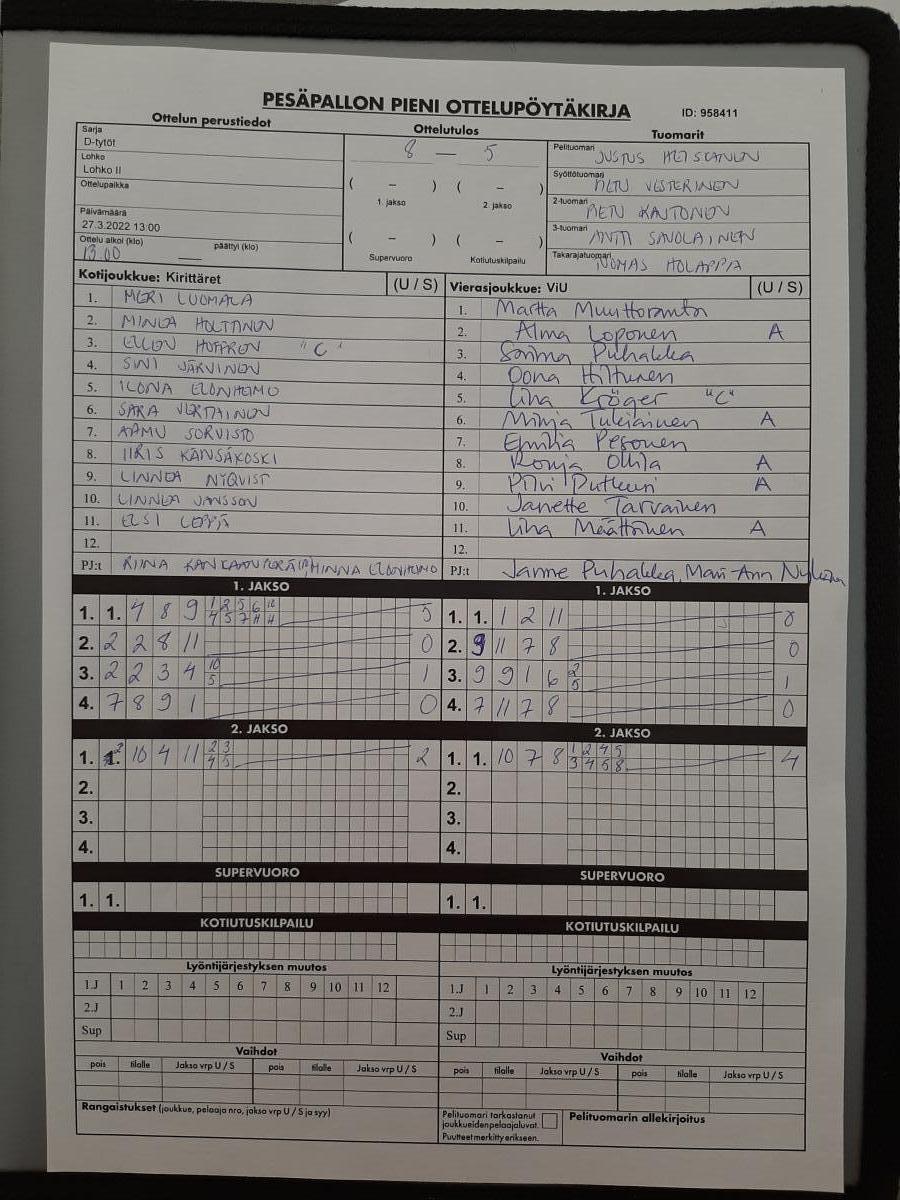 PESÄPALLON PIENI OTTELUPÖYTÄKIRJA
ID: 958411
Ottelun perustiedot
Ottelutulos
Tuomarit
Sarja
D-tytöt
Lohko
Lohko II
Ottelupaikka
Päivämäärä
27.3.2022 13:00
Ottelu alkoi (klo) päättyi (klo)
13.00
8 — 5
( – ) ( – )
1. jakso 2. jakso
( – ) ( – )
Supervuoro Kotiutuskilpailu
Pelituomari JUSTUS HEISKANEN
Syöttötuomari VESTERINEN
2-tuomari KANTONEN
3-tuomari ANTTI SAVOLAINEN
Takarajatuomari HOLAPPA
Kotijoukkue: Kirittäret (U / S)
1. MERI LUOMALA
2. MINEA HULTANEN
3. ELLEN HOFFREN "C"
4. SINI JÄRVINEN
5. ILONA ELONHEIMO
6. SARA VERTAINEN
7. AAMU SORVISTO
8. IIRIS KANSAKOSKI
9. LINNEA NYQVIST
10. LINNEA JANSSON
11. ELSI LEPPÄ
12.
PJ:t RIINA MINNA ELONHEIMO
Vierasjoukkue: ViU (U / S)
1. Martta Muuttoranta
2. Alma Loponen A
3. Sorima Puhakka
4. Oona Hiltunen
5. Liha Kröger "C"
6. Minja Tukiainen A
7. Emilia Pesonen
8. Ronja Ollila A
9. Pilvi Putkuri A
10. Janette Tarvainen
11. Liha Määttänen A
12.
PJ:t Janne Puhakka, Mari-Ann
1. JAKSO
1. 1. 7 8 9 1 2 5 6 10 5
4 5 7 11 11
2. 2 2 8 11 0
3. 2 2 3 4 10 1
5
4. 7 8 9 1 0
1. JAKSO
1. 1. 1 2 11 0
2. 9 11 7 8 0
3. 9 9 1 6 2 1
5
4. 7 11 7 8 0
2. JAKSO
1. 2 10 4 11 2 3 2
4 5
2.
3.
4.
2. JAKSO
1. 1. 10 7 8 1 2 4 5 4
3 4 6 8
2.
3.
4.
SUPERVUORO
1. 1.
SUPERVUORO
1. 1.
KOTIUTUSKILPAILU
KOTIUTUSKILPAILU
Lyöntijärjestyksen muutos
1.J 1 2 3 4 5 6 7 8 9 10 11 12
2.J
Sup
Lyöntijärjestyksen muutos
1.J 1 2 3 4 5 6 7 8 9 10 11 12
2.J
Sup
Vaihdot
pois tilalle Jakso vrp U / S pois tilalle Jakso vrp U / S
Vaihdot
pois tilalle Jakso vrp U / S pois tilalle Jakso vrp U / S
Rangaistukset (joukkue, pelaaja nro, jakso vrp U / S ja syy)
Pelituomari tarkastanut
joukkueidenpelaajaluvat.
Puutteet merkitty erikseen.
Pelituomarin allekirjoitus